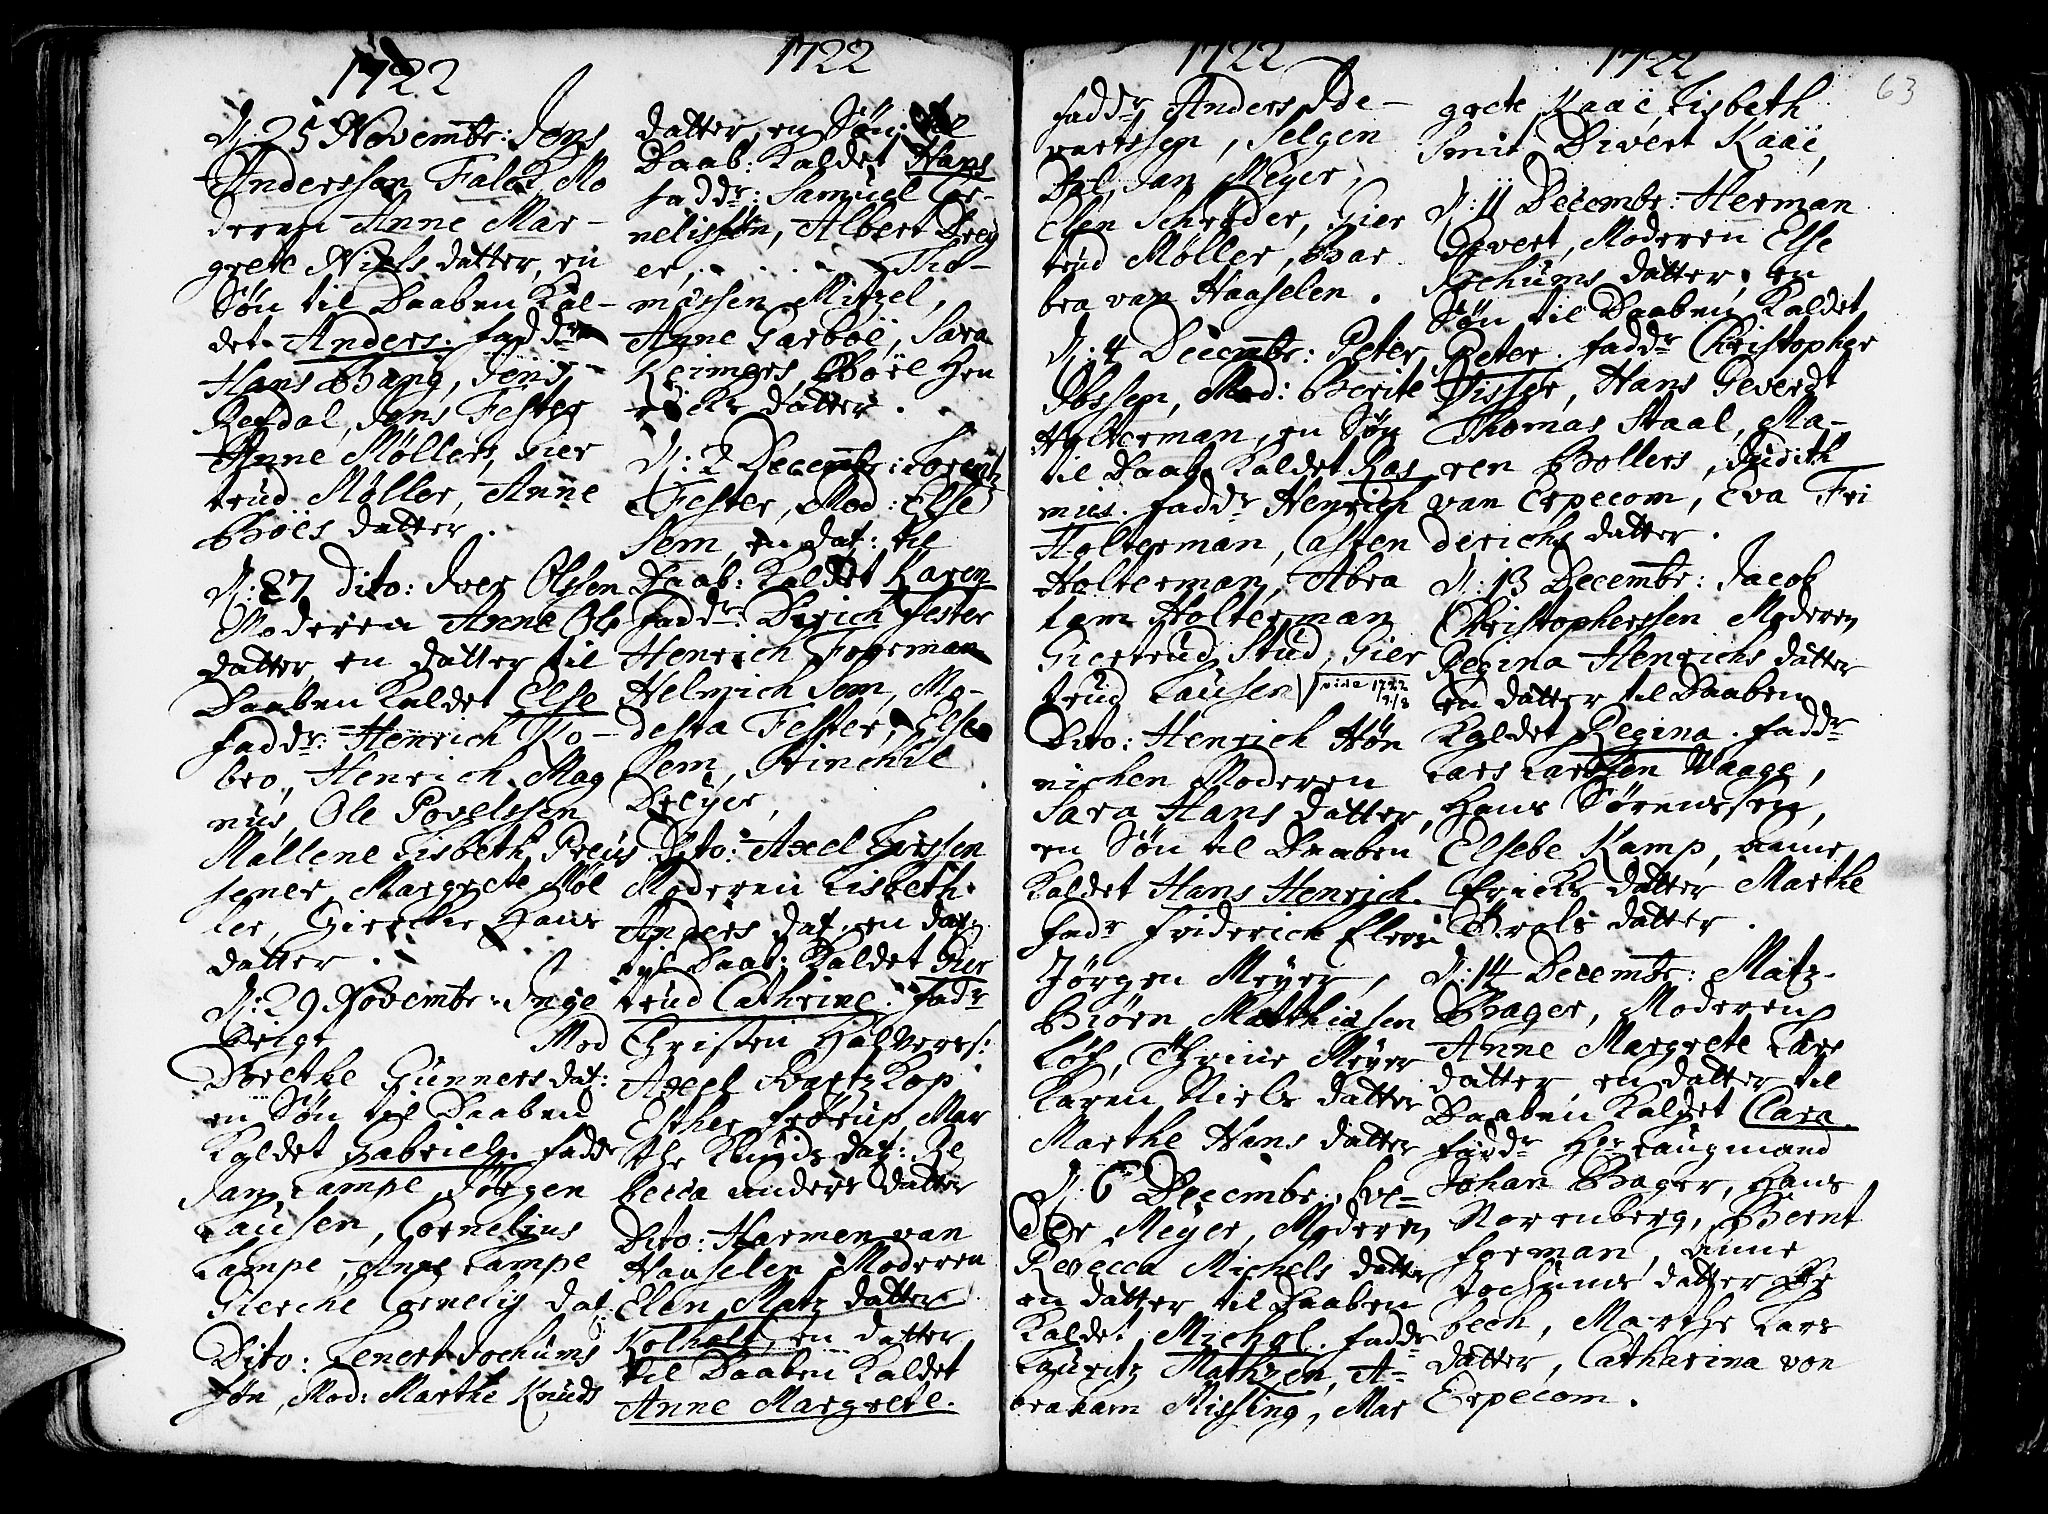 1722
D: 25 Novembr: Jens
Anderssøn Falck, Mo
deren Anne Mar-
grete Niels datter, en
Søn til Daaben Kal-
det Anders. faddr
Hans Bang, Jens
Refdal, Jens Fester
Anne Møllers, Gier
trud Møller, Anne
Boës datter.
D: 27 Dito: Iver Olssen
Moderen Anne Ols
datter, en datter til
Daaben Kaldet Else
faddr: Henrich Ko-
bro, Henrich Mag
nus, Ole Povelssen
Mallene Lisbeth Preus
sener, Margrete Møl
ler, Giercke Hans
datter.
D: 29 Novembr: Inge
Mod
Dorethe Gunners dat:
en Søn til Daaben
Kaldet Gabriel. fadd
Jan Lampe, Jörgen
Lausen, Cornelius
Lampe, Anne Lampe
Gierche Cornelis dat:
Dito: Lenert Jochums
søn, Mod: Marthe Knuds
1722
datter, en Søn til
Daab: Kaldet Hans
faddr: Samuel Cor-
nelissøn, Albert Drey
er, . . . . . Tho-
massen Mitzel,
Anne Garboë, Sara
Reimers, Boël Hen
richs datter.
D: 2 Decembr: Lorentz
Fester, Mod: Else
Sem, en dat: til
Daab: Kaldet Karen
faddr: Dirich Fester
Henrich Foorman
Helmich Sem, Mo-
desta Fester, Else
Sem, Stinchil
Dreÿer,
Dito: Axel Larssen
Moderen Lisbeth
Anders dat: en dat:
til Daab: Kaldet Gier
trud Cathrine. Fadr
Christen Halvers:
Axel Svartzkop
Esther frørup, Mar
the Knuds dat: Re
becca Anders datter
Dito: Harmen van
Haaselen Moderen
Elen Matz datter
Kolholt, en datter
til Daaben Kaldet
Anne Margrete.
1722
faddr Anders Ide-
vartssen, Selgen
Dal, Jan Meÿer,
Elen Schrøder, Gier
trud Møller, Bar
bra van Haaselen.
D: 4 Decembr: Peter
Ibssen, Mod: Berite
Holterman, en Søn
til Daab: Kaldet Ras
mus. faddr Henrich
Holterman, Casten
Holterman, Abra
ham Holterman
Giertrud Stud, Gier
trud Lausen vide 1722 19/3
Dito: Henrich Høn
nichen Moderen
Sara Hans datter,
en Søn til Daaben
Kaldet Hans Henrich.
fadr Friderich Elers
Jørgen Meyer,
Biørn Matthiesen
Løch, Thrine Meyer
Karen Niels datter
Marthe Hans datter
D: 6 Decembr: Pe-
der Meÿer, Moderen
Rebecca Michels datter
en datter til Daaben
Kaldet Michel. faddr
Lauritz Mathzen, A-
braham Missing, Mar
1722
63
grete Kaaë, Lisbeth
Smit Divert Kaaë,
D: 11 Decembr: Herman
Gevert, Moderen Else
Jochums datter, en
Søn til Daaben Kaldet
Peter. faddr Christopher
Visser, Hans Geverdt
Thomas Staal, Ma-
ren Bollers, Judith
van Erpecom, Eva Fri
derichs datter.
D: 13 Decembr: Jacob
Christopherssen Moderen
Regina Henrichs datter
en datter til Daaben
Kaldet Regina. faddr
Lars Larssen Waage,
Hans Sørenssen,
Elsebe Kamp, Anne
Erichs datter Marthe
Trols datter.
D: 14 Decembr: Matz
Bager, Moderen
Anne Margrete Lars
datter en datter til
Daaben Kaldet Clara.
faddr Hr Laugmand
Johan Bager, Hans
Norenberg, Bernt
forman, Anne
Jochums datter Re
bech, Marthe Lars
datter, Catharina von
Erpecom.